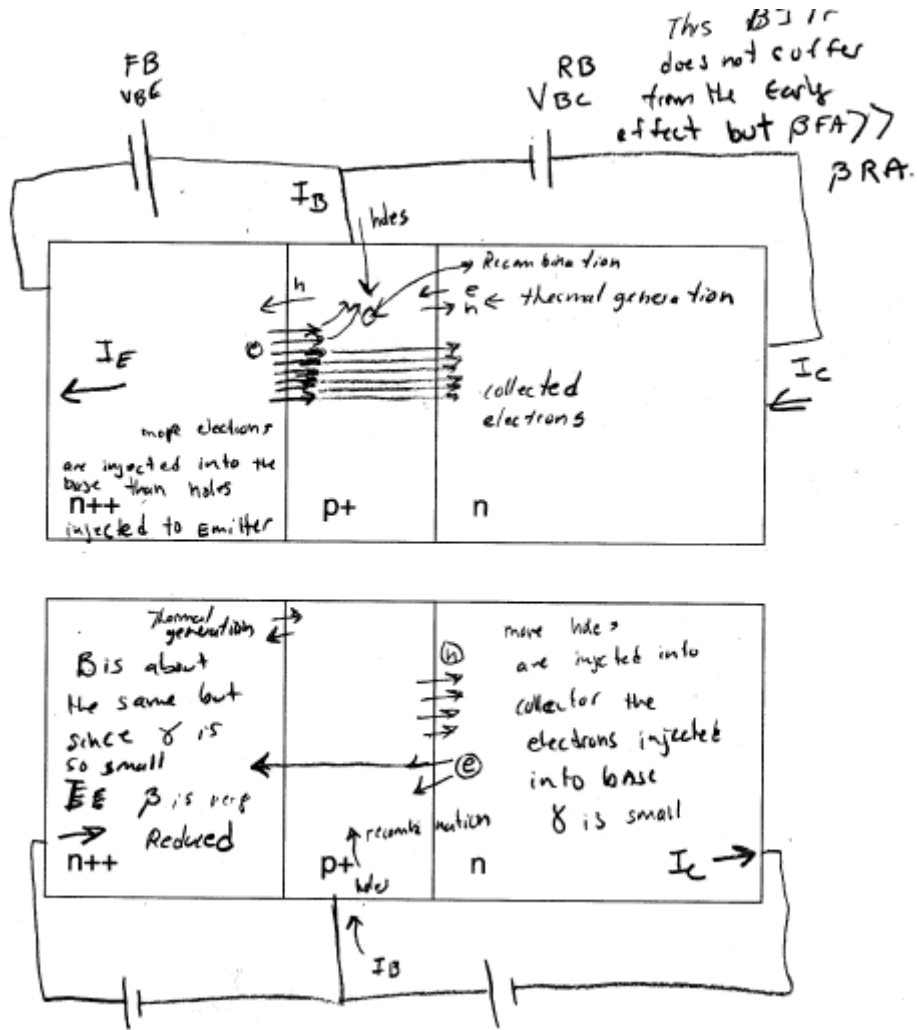 This BJT
does not suffer
from the Early
effect but βFA>>
βRA.
FB
VBE
RB
VBC
IB
holes
Recombination
h
e
h ← thermal generation
e
IE
IC
collected
electrons
more electrons
are injected into the
base than holes
n++
injected to Emitter
p+
n
Thermal
generation
B is about
the same but
since γ is
so small
β is very
Reduced
n++
h
e
more holes
are injected into
collector the
electrons injected
into base
γ is small
recombination
p+
holes
n
IC
IB